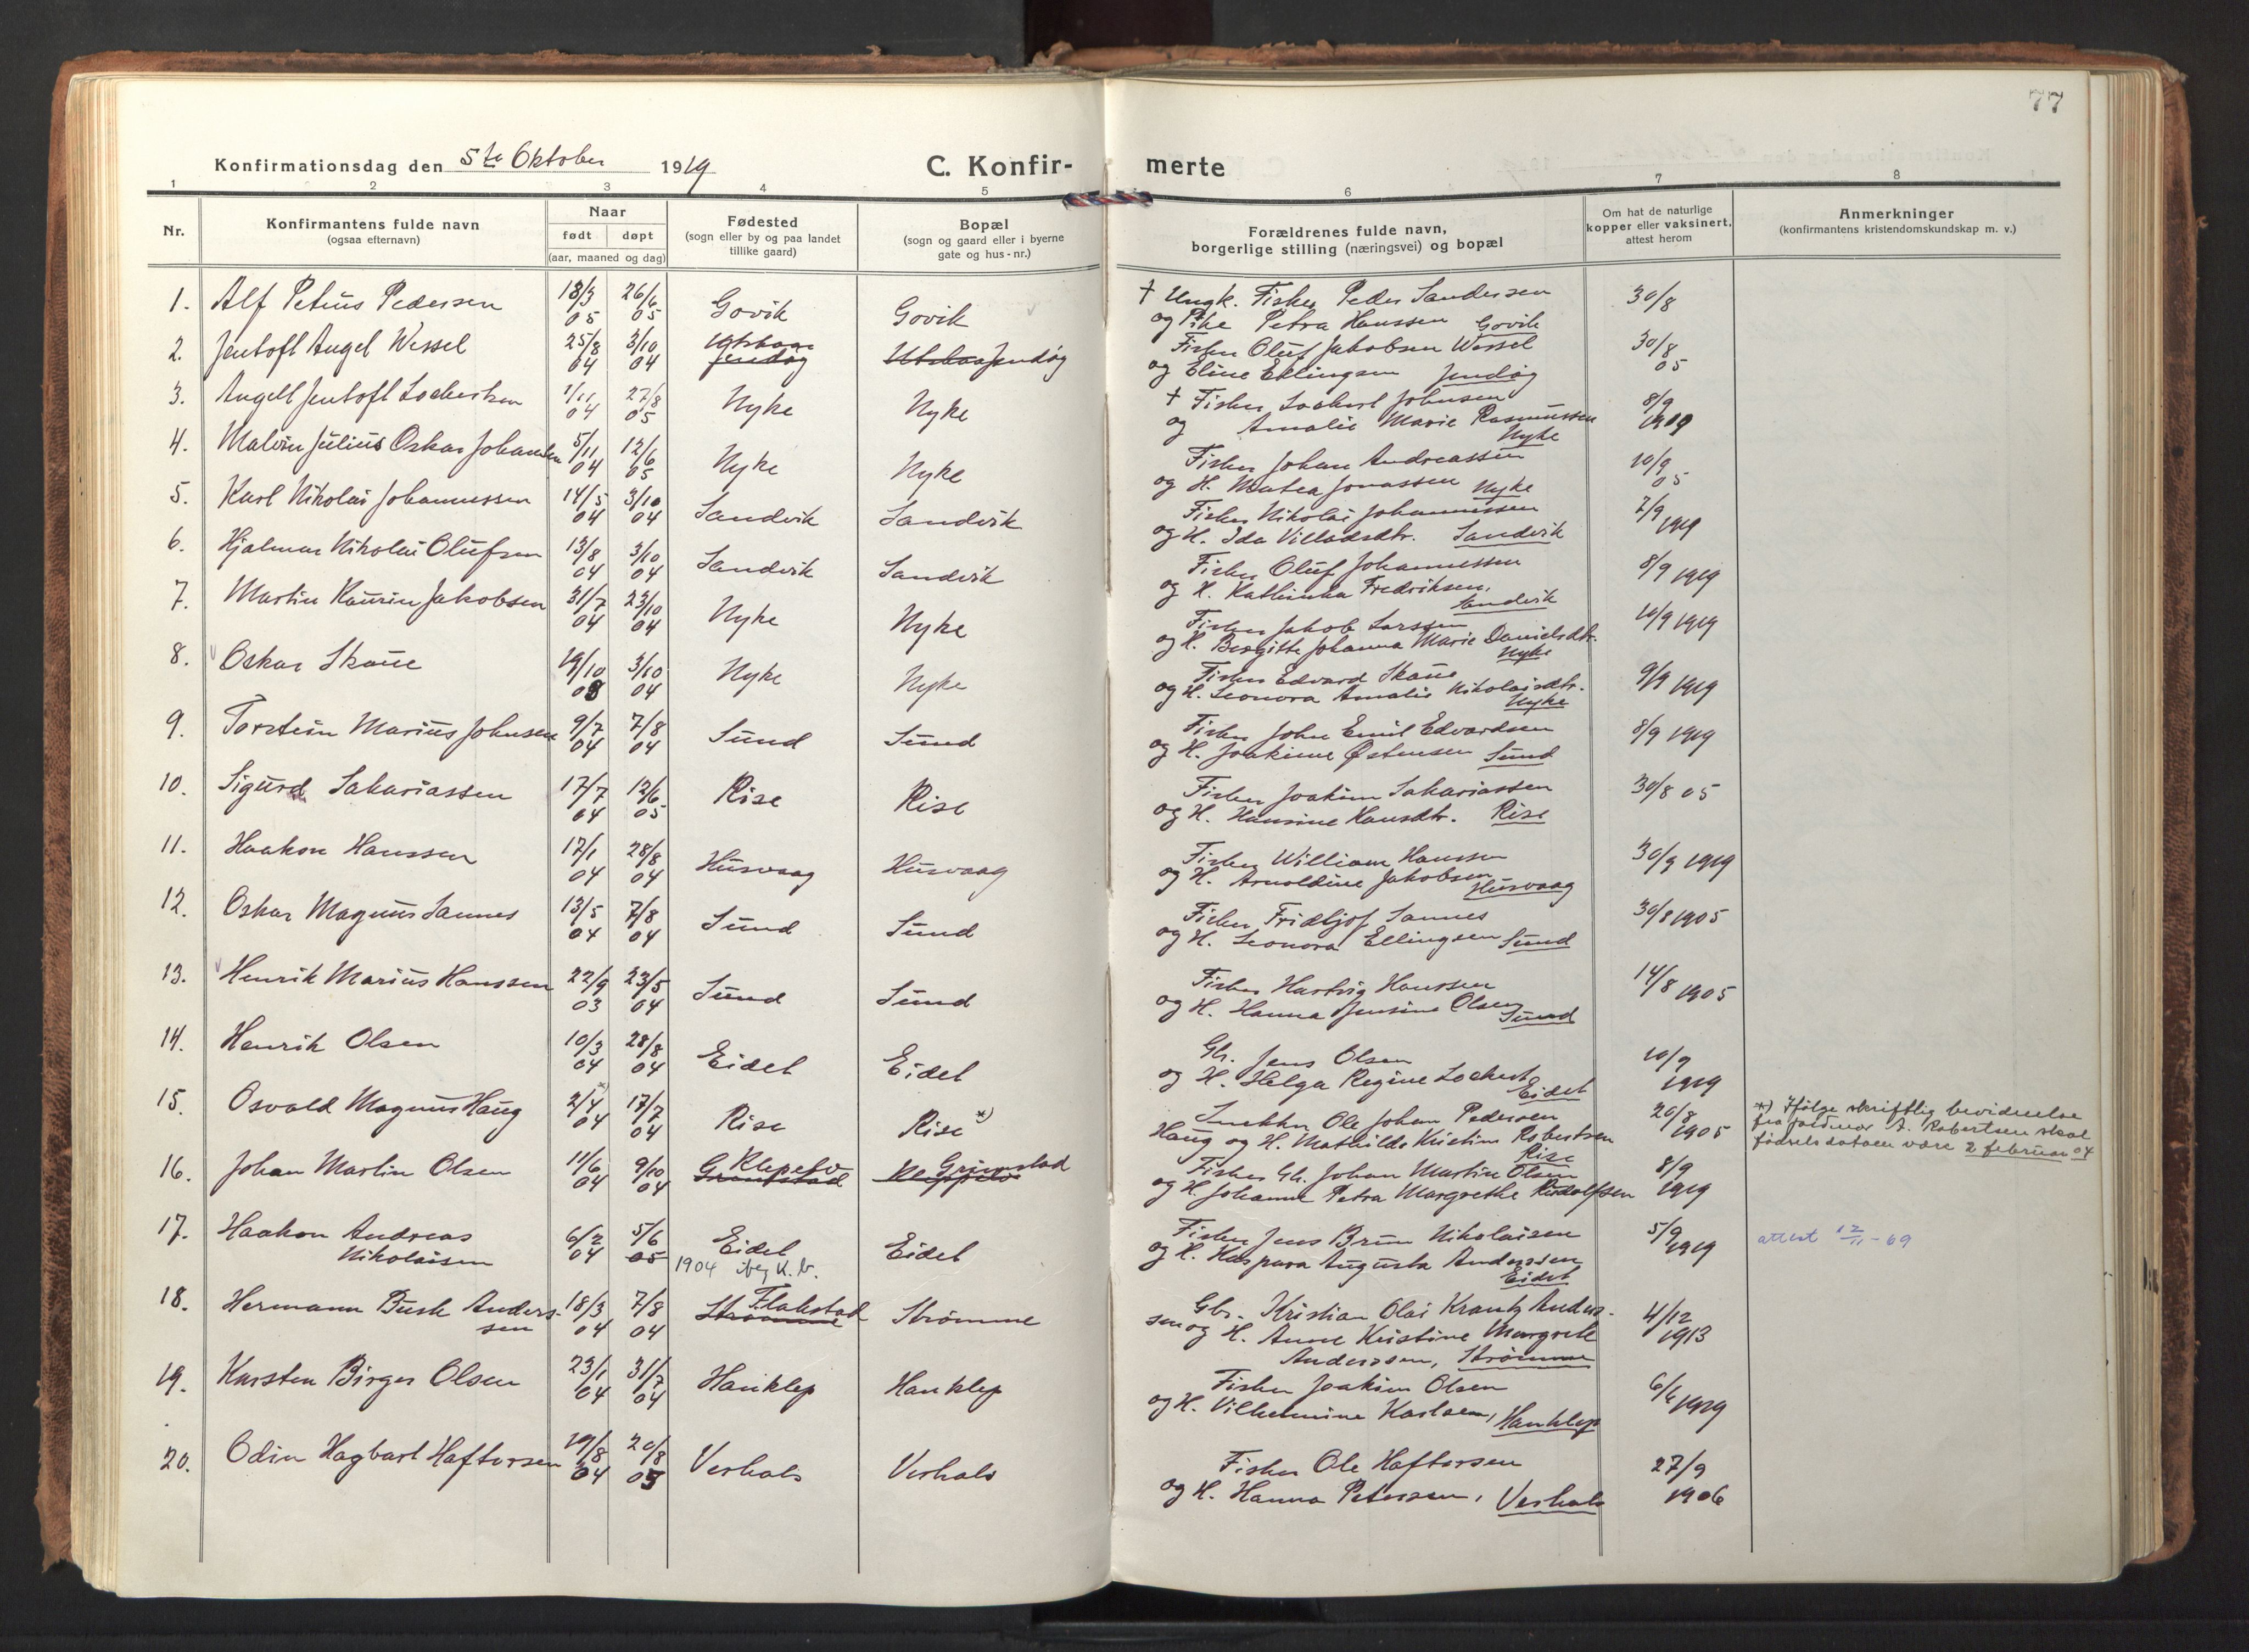 77
Konfirmationsdag den 5te Oktober 1919
C. Konfirmerte
1 2 3 4 5 6 7 8
Nr.
Konfirmantens fulde navn
(ogsaa efternavn)
Naar
født døpt
(aar, maaned og dag)
Fødested
(sogn eller by og paa landet
tillike gaard)
Bopæl
(sogn og gaard eller i byerne
gate og hus-nr.)
Forældrenes fulde navn,
borgerlige stilling (næringsvei) og bopæl
Om hat de naturlige
kopper eller vaksinert,
attest herom
Anmerkninger
(konfirmantens kristendomskundskap m. v.)
1. Alf Petius Pedersen 18/3 05 26/6 05 Govik Govik † Ungk. Fisker Peder Sandersen 30/8
og Pike Petra Hanssen Govik
2. Jentoft Angel Wessel 25/8 04 3/10 04 Jendøg Jendøg Fisker Oluf Jakobsen Wessel 30/8 05
og Eline Ellingsen Jendøg
3. Angell Jentoft Lockertsen 1/11 04 27/8 05 Nyke Nyke † Fisker Lockert Johnsen 8/9 1919
og Amalie Marie Rasmussen
Nyke
4. Malvin Julius Oskar Johansen 5/11 04 12/6 05 Nyke Nyke Fisker Johan Andreassen 10/9 05
og H. Matea Jonassen Nyke
5. Karl Nikolai Johannessen 14/5 04 3/10 04 Sandvik Sandvik Fisker Nikolai Johannessen 7/9 1919
og H. Ida Villadsdtr. Sandvik
6. Hjalmar Nikolai Olufsen 13/8 04 3/10 04 Sandvik Sandvik Fisker Oluf Johannessen 8/9 1919
og H. Kathinka Fredriksen,
Sandvik
7. Martin Kaurin Jakobsen 31/7 04 23/10 04 Nyke Nyke Fisker Jakob Larssen 10/9 1919
og H. Birgitte Johanna Marie Danielsdtr.
Nyke
8. Oskar Skaue 19/10 03 3/10 04 Nyke Nyke Fisker Edvard Skaue 9/9 1919
og H. Leonora Amalie Nikolaisdtr.
Nyke
9. Torstein Marius Johnsen 9/7 04 7/8 04 Sund Sund Fisker John Emil Edvardsen 8/9 1919
og H. Joakime Østensen Sund
10. Sigurd Sakariassen 17/7 04 12/6 05 Rise Rise Fisker Joakim Sakariassen 30/8 05
og H. Hansine Hansdtr. Rise
11. Haakon Hanssen 17/1 04 28/8 04 Husvaag Husvaag Fisker William Hanssen 30/9 1919
og H. Arnoldine Jakobsen
Husvaag
12. Oskar Magnus Sannes 13/5 04 7/8 04 Sund Sund Fisker Fridtjof Sannes 30/8 1905
og H. Leonora Ellingsen Sund
13. Henrik Marius Hanssen 22/9 03 23/5 04 Sund Sund Fisker Hartvig Hanssen 14/8 1905
og H. Hanna Jensine Olsen
Sund
14. Henrik Olsen 10/3 04 28/8 04 Eidet Eidet Gbr. Jens Olsen 10/9 1919
og H. Helga Regine Lockert
Eidet
15. Osvald Magnus Haug 2/4 04 17/7 04 Rise Rise *) Snekker Ole Johan Pedersen 20/8 1905 *) Ifølge skriftlig bevidnelse
Haug og H. Mathilde Kristine Robertsen fra jordmor A. Robertsen skal
Rise fødselsdatoen være 2 februar 04
16. Johan Martin Olsen 11/6 04 9/10 04 Klepstø Grimstad Grimstad Kleppstø Fisker Gb. Johan Martin Olsen 8/9 1919
og H. Johanne Petra Margrethe Rudolfsen
17. Haakon Andreas 6/2 04 5/6 05 Eidet Eidet Fisker Jens Bruun Nikolaisen 5/9 1919 attest 12/11-69
Nikolaisen 1904 og H. Kaspara Augusta Anderssen
Eidet
18. Hermann Busk Anders- 18/3 04 7/8 04 Flakstad Strømme Strømme Gbr. Kristian Olai Krantz Anders- 4/12 1913
sen sen og H. Anne Kristine Margrete
Anderssen, Strømme
19. Karsten Birger Olsen 23/1 04 31/7 04 Hanklep Hanklep Fisker Joakim Olsen 6/6 1919
og H. Vilhelmine Karlsen, Hanklep
20. Odin Hagbart Haftorsen 19/8 04 20/8 05 Verhals Verhals Fisker Ole Haftorsen 27/9 1906
og H. Hanna Petersen, Verhals